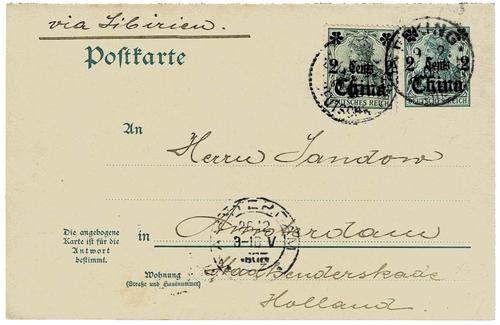 via Sibirien.
Postkarte
2 Cents 2
China
DEUTSCHES REICH
2 Cents 2
China
DEUTSCHES REICH
PEKING
DEUTSCHE
An
Herrn Sandow
AMSTERDAM
3-10 V
in Amsterdam
Die angebogene
Karte ist für die
Antwort
bestimmt.
Wohnung
(Straße und Hausnummer)
Holland.